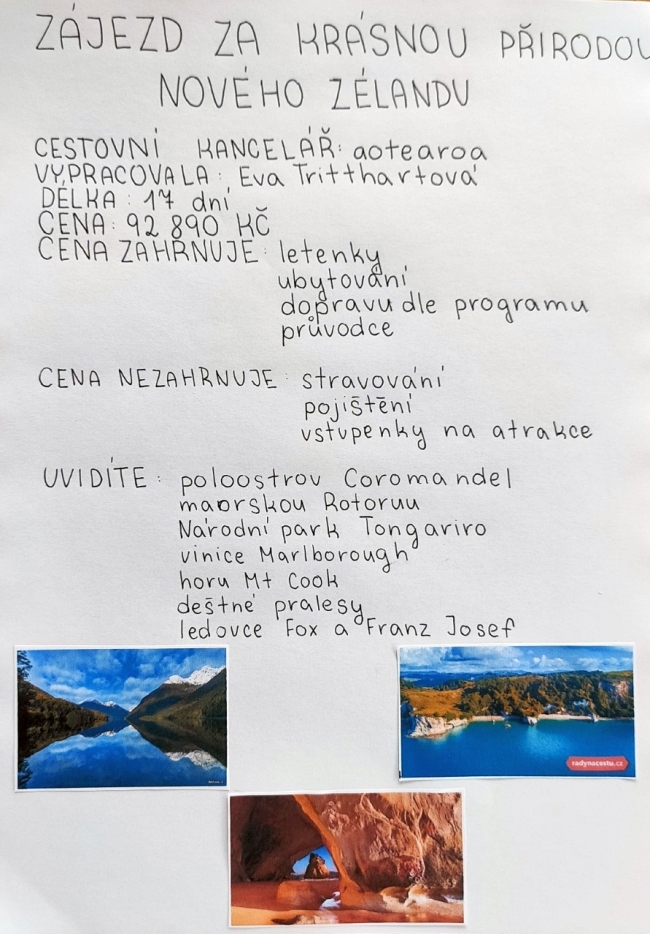 ZÁJEZD ZA KRÁSNOU PŘIRODOU
NOVÉHO ZÉLANDU
CESTOVNÍ KANCELÁŘ: aotearoa
VYPRACOVALA: Eva Tritthartová
DÉLKA: 17 dní
CENA: 92 890 KČ
CENA ZAHRNUJE: letenky
ubytování
dopravu dle programu
průvodce
CENA NEZAHRNUJE: stravování
pojištění
vstupenky na atrakce
UVIDÍTE: poloostrov Coromandel
maorskou Rotoruu
Národní park Tongariro
vinice Marlborough
horu Mt Cook
deštné pralesy
ledovce Fox a Franz Josef
radynacestu.cz